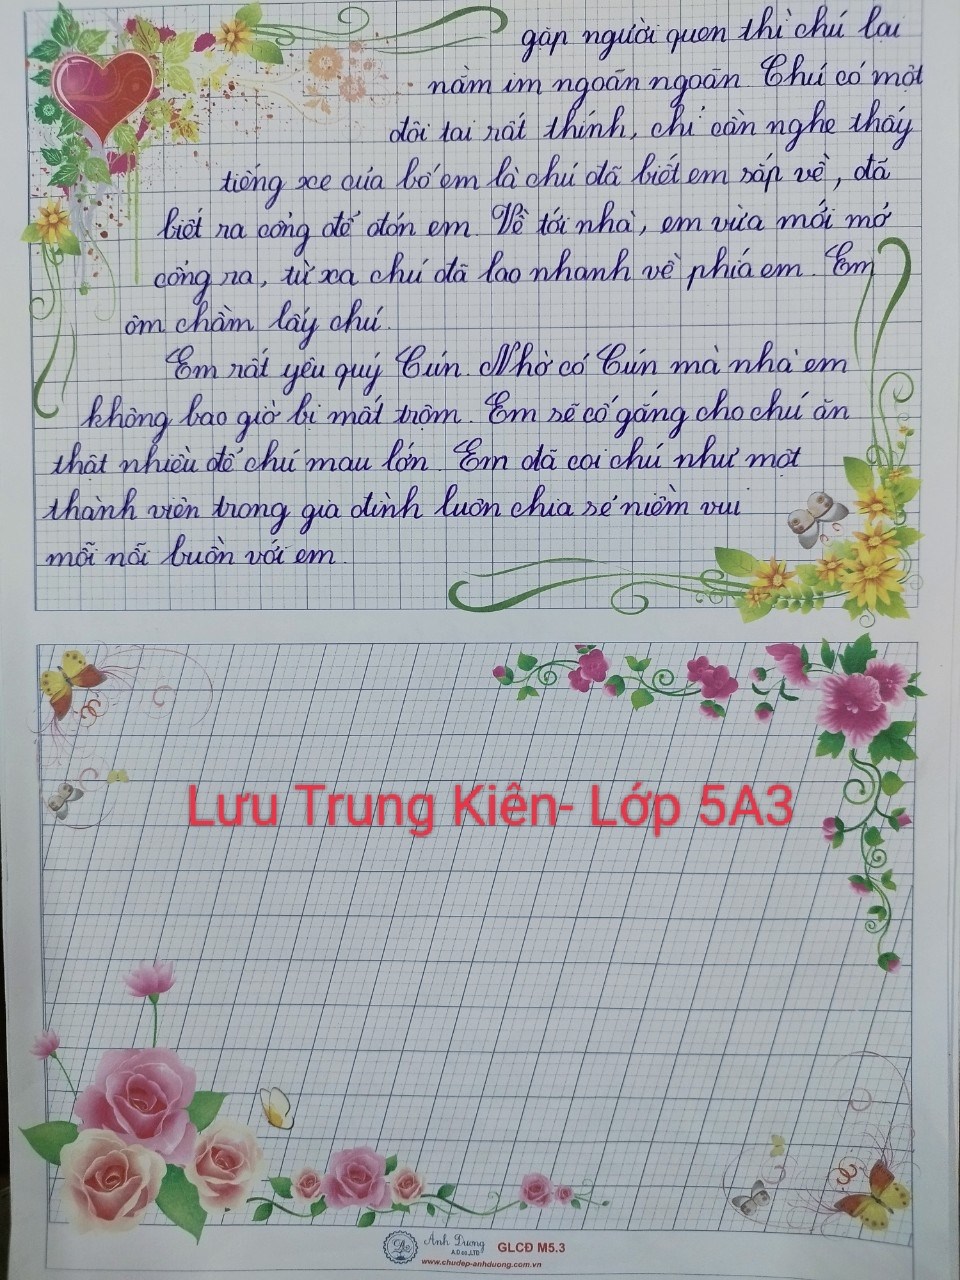 gặp người quen thì chú lại
nằm im ngoãn ngoãn. Chú có một
đôi tai rất thính, chỉ cần nghe thấy
tiếng xe của bố em là chú đã biết em sắp về, đã
biết ra cổng để đón em. Về tới nhà, em vừa mới mở
cổng ra, từ xa chú đã lao nhanh về phía em. Em
ôm chầm lấy chú.
Em rất yêu quý Cún. Nhờ có Cún mà nhà em
không bao giờ bị mất trộm. Em sẽ cố gắng cho chú ăn
thật nhiều để chú mau lớn. Em đã coi chú như một
thành viên trong gia đình luôn chia sẻ niềm vui
mỗi nỗi buồn với em.
Lưu Trung Kiên- Lớp 5A3
Ánh Dương
A.D co.,LTD
GLCĐ M5.3
www.chudep-anhduong.com.vn